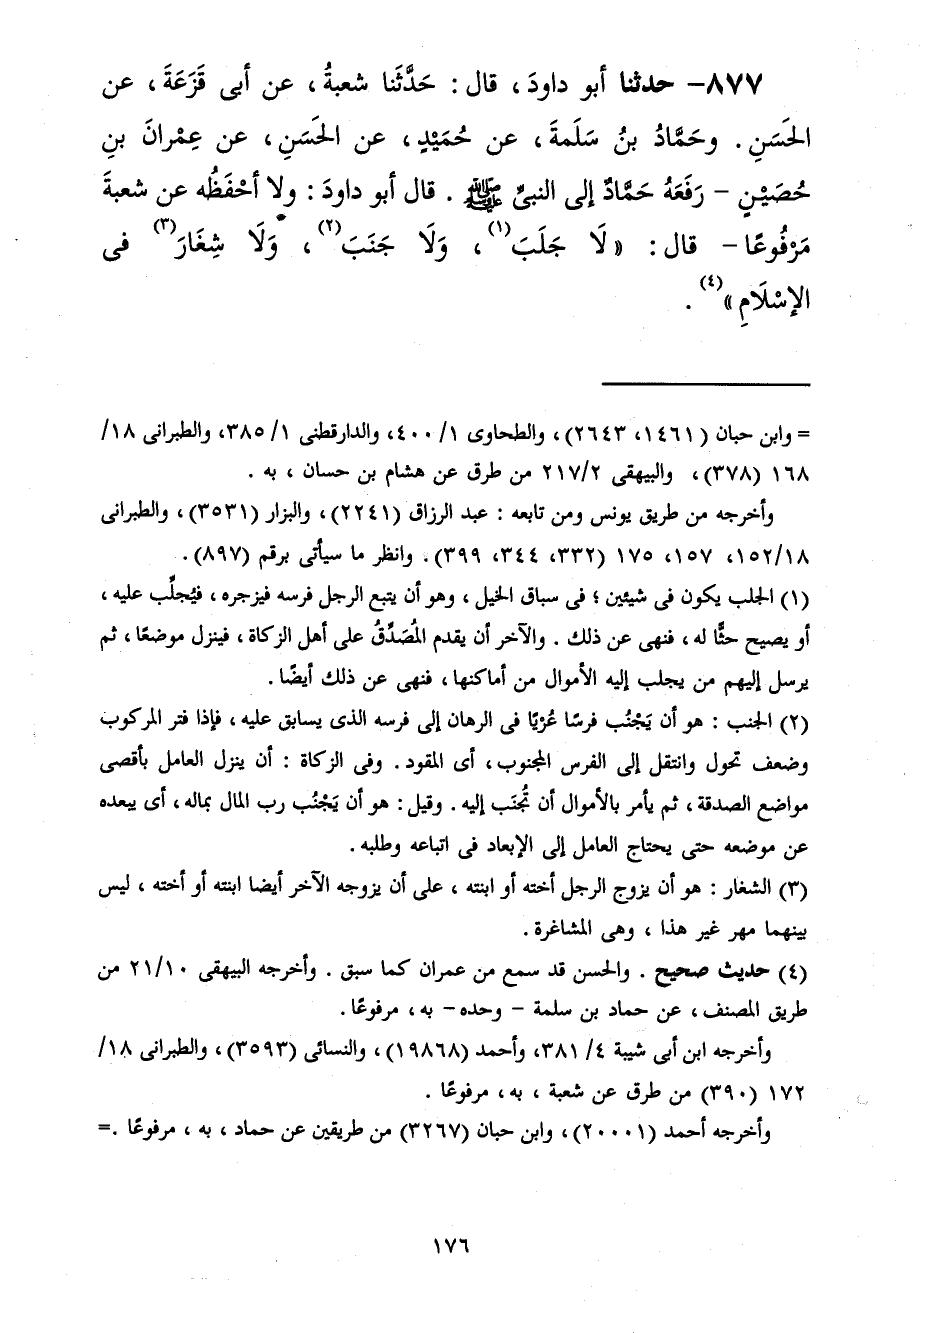 ٨٧٧- حدثنا أبو داودَ ، قال : حَدَّثَنا شعبةُ ، عن أبى قَزَعَةَ ، عن
الحَسَنِ . وحَمَّادُ بنُ سَلَمةَ ، عن حُمَيْدٍ ، عن الحَسَنِ ، عن عِمْرانَ بنِ
حُصَيْنٍ – رَفَعَهُ حَمَّادٌ إلى النبىِّ ﷺ . قال أبو داودَ : ولا أحْفَظُه عن شعبةَ
مَرْفُوعًا – قال : « لَا جَلَبَ(١) ، وَلَا جَنَبَ(٢) ، وَلَا شِغَارَ(٣) فى
الإسْلَامِ »(٤) .
= وابن حبان (١٤٦١، ٢٦٤٣) ، والطحاوى ١/ ٤٠٠، والدارقطنى ١/ ٣٨٥، والطبرانى ١٨/
١٦٨ (٣٧٨) ، والبيهقى ٢١٧/٢ من طرق عن هشام بن حسان ، به .
وأخرجه من طريق يونس ومن تابعه : عبد الرزاق (٢٢٤١) ، والبزار (٣٥٣١) ، والطبرانى
١٥٢/١٨، ١٥٧، ١٧٥ (٣٣٢، ٣٤٤، ٣٩٩). وانظر ما سيأتى برقم (٨٩٧) .
(١) الجلب يكون فى شيئين ؛ فى سباق الخيل ، وهو أن يتبع الرجل فرسه فيزجره ، فيُجلِّب عليه ،
أو يصيح حثًّا له ، فنهى عن ذلك . والآخر أن يقدم المُصَدِّقُ على أهل الزكاة ، فينزل موضعًا ، ثم
يرسل إليهم من يجلب إليه الأموال من أماكنها ، فنهى عن ذلك أيضًا .
(٢) الجنب : هو أن يَجْنُب فرسًا عُرْيًا فى الرهان إلى فرسه الذى يسابق عليه ، فإذا فتر المركوب
وضعف تحول وانتقل إلى الفرس المجنوب ، أى المقود . وفى الزكاة : أن ينزل العامل بأقصى
مواضع الصدقة ، ثم يأمر بالأموال أن تُجنَب إليه . وقيل : هو أن يَجْنُب رب المال بماله ، أى يبعده
عن موضعه حتى يحتاج العامل إلى الإبعاد فى اتباعه وطلبه .
(٣) الشغار : هو أن يزوج الرجل أخته أو ابنته ، على أن يزوجه الآخر أيضا ابنته أو أخته ، ليس
بينهما مهر غير هذا ، وهى المشاغرة .
(٤) حديث صحيح . والحسن قد سمع من عمران كما سبق . وأخرجه البيهقى ٢١/١٠ من
طريق المصنف ، عن حماد بن سلمة – وحده – به ، مرفوعًا .
وأخرجه ابن أبى شيبة ٤/ ٣٨١، وأحمد (١٩٨٦٨) ، والنسائى (٣٥٩٣) ، والطبرانى ١٨/
١٧٢ (٣٩٠) من طرق عن شعبة ، به ، مرفوعًا .
وأخرجه أحمد (٢٠٠٠١) ، وابن حبان (٣٢٦٧) من طريقين عن حماد ، به ، مرفوعًا .=
١٧٦